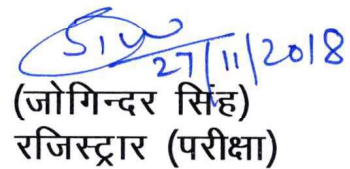 27/11/2018
(जोगिन्दर सिंह)
रजिस्ट्रार (परीक्षा)